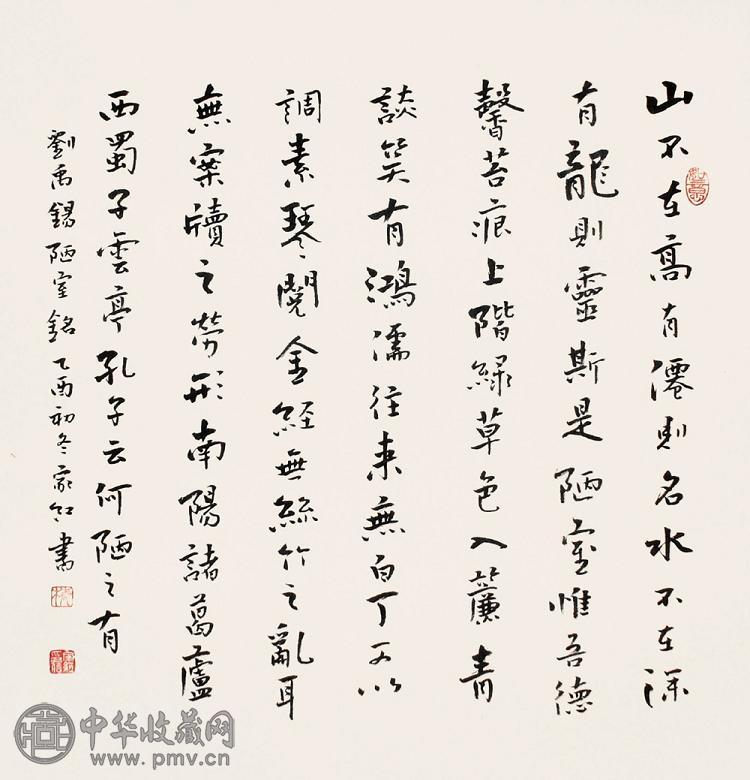 山不在高有僊則名水不在深
有龍則靈斯是陋室惟吾德
馨苔痕上階緑草色入簾青
談笑有鴻儒往来無白丁可以
調素琴閱金経無絲竹之亂耳
無案牘之勞形南陽諸葛廬
西蜀子雲亭孔子云何陋之有
劉禹錫陋室銘乙酉初冬家書
中华收藏网
www.pmv.cn